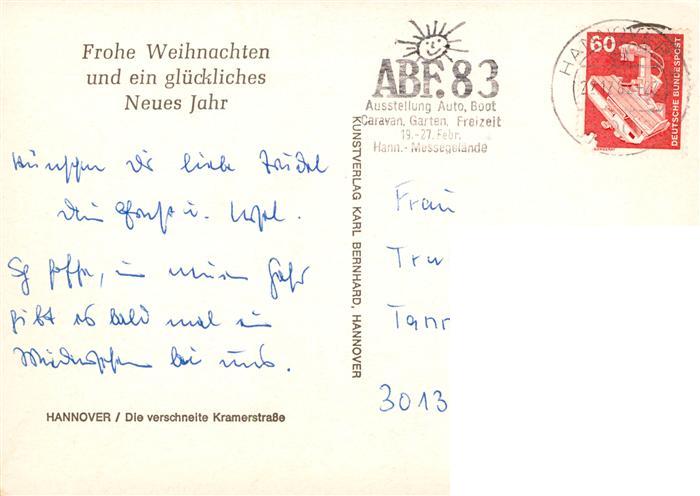 Frohe Weihnachten
und ein glückliches
Neues Jahr
Wünschen Dir liebe Trudel
Dein u.
Ich hoffe, im neuen Jahr
gibt es bald mal ein
Wiedersehen bei uns.
HANNOVER / Die verschneite Kramerstraße
KUNSTVERLAG KARL BERNHARD, HANNOVER
ABF.83
Ausstellung Auto, Boot
Caravan, Garten, Freizeit
19.-27. Febr.
Hann.- Messegelände
HANNOVER
60
DEUTSCHE BUNDESPOST
Frau
Tru
Tann
3013